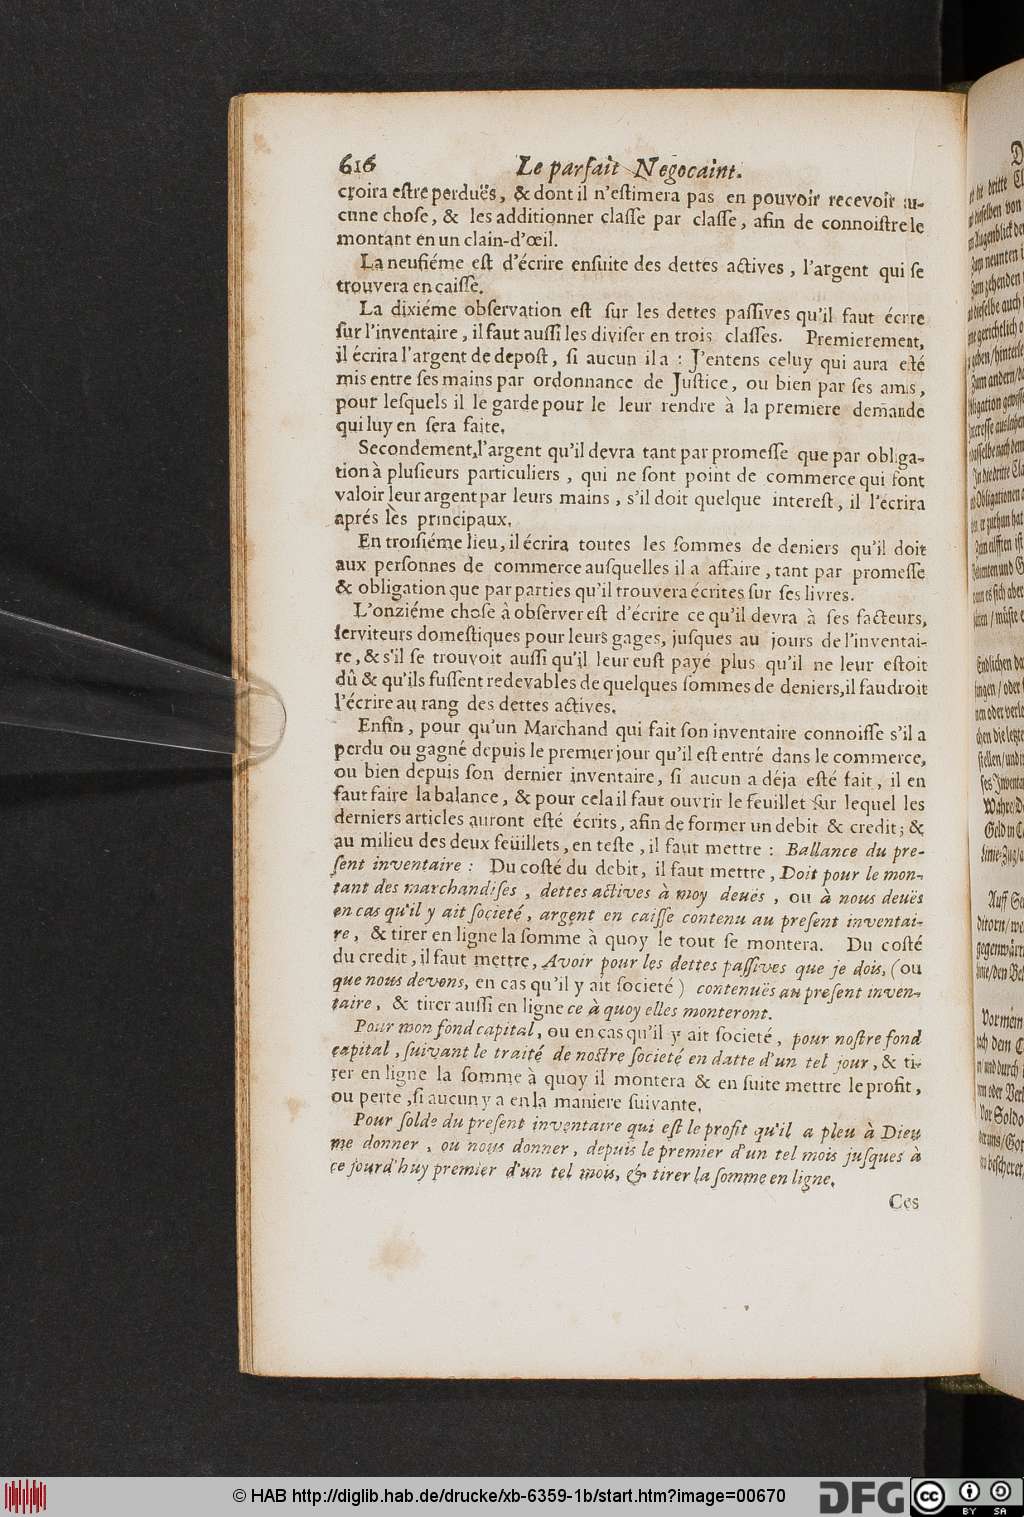 616 Le parfait Negocaint.
croira estre perduës, & dont il n'estimera pas en pouvoir recevoir au-
cune chose, & les additionner classe par classe, afin de connoistre le
montant en un clain-d'œil.
La neufiéme est d'écrire ensuite des dettes actives, l'argent qui se
trouvera en caisse.
La dixiéme observation est sur les dettes passives qu'il faut écrire
sur l'inventaire, il faut aussi les diviser en trois classes. Premierement,
il écrira l'argent de depost, si aucun il a : J'entens celuy qui aura esté
mis entre ses mains par ordonnance de Justice, ou bien par ses amis,
pour lesquels il le garde pour le leur rendre à la premiere demande
qui luy en sera faite.
Secondement, l'argent qu'il devra tant par promesse que par obliga-
tion à plusieurs particuliers, qui ne sont point de commerce qui font
valoir leur argent par leurs mains, s'il doit quelque interest, il l'écrira
aprés les principaux.
En troisiéme lieu, il écrira toutes les sommes de deniers qu'il doit
aux personnes de commerce ausquelles il a affaire, tant par promesse
& obligation que par parties qu'il trouvera écrites sur ses livres.
L'onziéme chose à observer est d'écrire ce qu'il devra à ses facteurs,
serviteurs domestiques pour leurs gages, jusques au jours de l'inventai-
re, & s'il se trouvoit aussi qu'il leur eust payé plus qu'il ne leur estoit
dû & qu'ils fussent redevables de quelques sommes de deniers, il faudroit
l'écrire au rang des dettes actives.
Enfin, pour qu'un Marchand qui fait son inventaire connoisse s'il a
perdu ou gagné depuis le premier jour qu'il est entré dans le commerce,
ou bien depuis son dernier inventaire, si aucun a déja esté fait, il en
faut faire la balance, & pour cela il faut ouvrir le feuillet sur lequel les
derniers articles auront esté écrits, afin de former un debit & credit; &
au milieu des deux feüillets, en teste, il faut mettre : Ballance du pre-
sent inventaire : Du costé du debit, il faut mettre, Doit pour le mon-
tant des marchandises, dettes actives à moy deuës, ou à nous deuës
en cas qu'il y ait societé, argent en caisse contenu au present inventai-
re, & tirer en ligne la somme à quoy le tout se montera. Du costé
du credit, il faut mettre, Avoir pour les dettes passives que je dois, (ou
que nous devons, en cas qu'il y ait societé) contenuës au present inven-
taire, & tirer aussi en ligne ce à quoy elles monteront.
Pour mon fond capital, ou en cas qu'il y ait societé, pour nostre fond
capital, suivant le traité de nostre societé en datte d'un tel jour, & ti-
rer en ligne la somme à quoy il montera & en suite mettre le profit,
ou perte, si aucun y a en la maniere suivante.
Pour solde du present inventaire qui est le profit qu'il a pleu à Dieu
me donner, ou nous donner, depuis le premier d'un tel mois jusques à
ce jourd'huy premier d'un tel mois, & tirer la somme en ligne.
Ces
© HAB http://diglib.hab.de/drucke/xb-6359-1b/start.htm?image=00670
DFG
cc BY SA